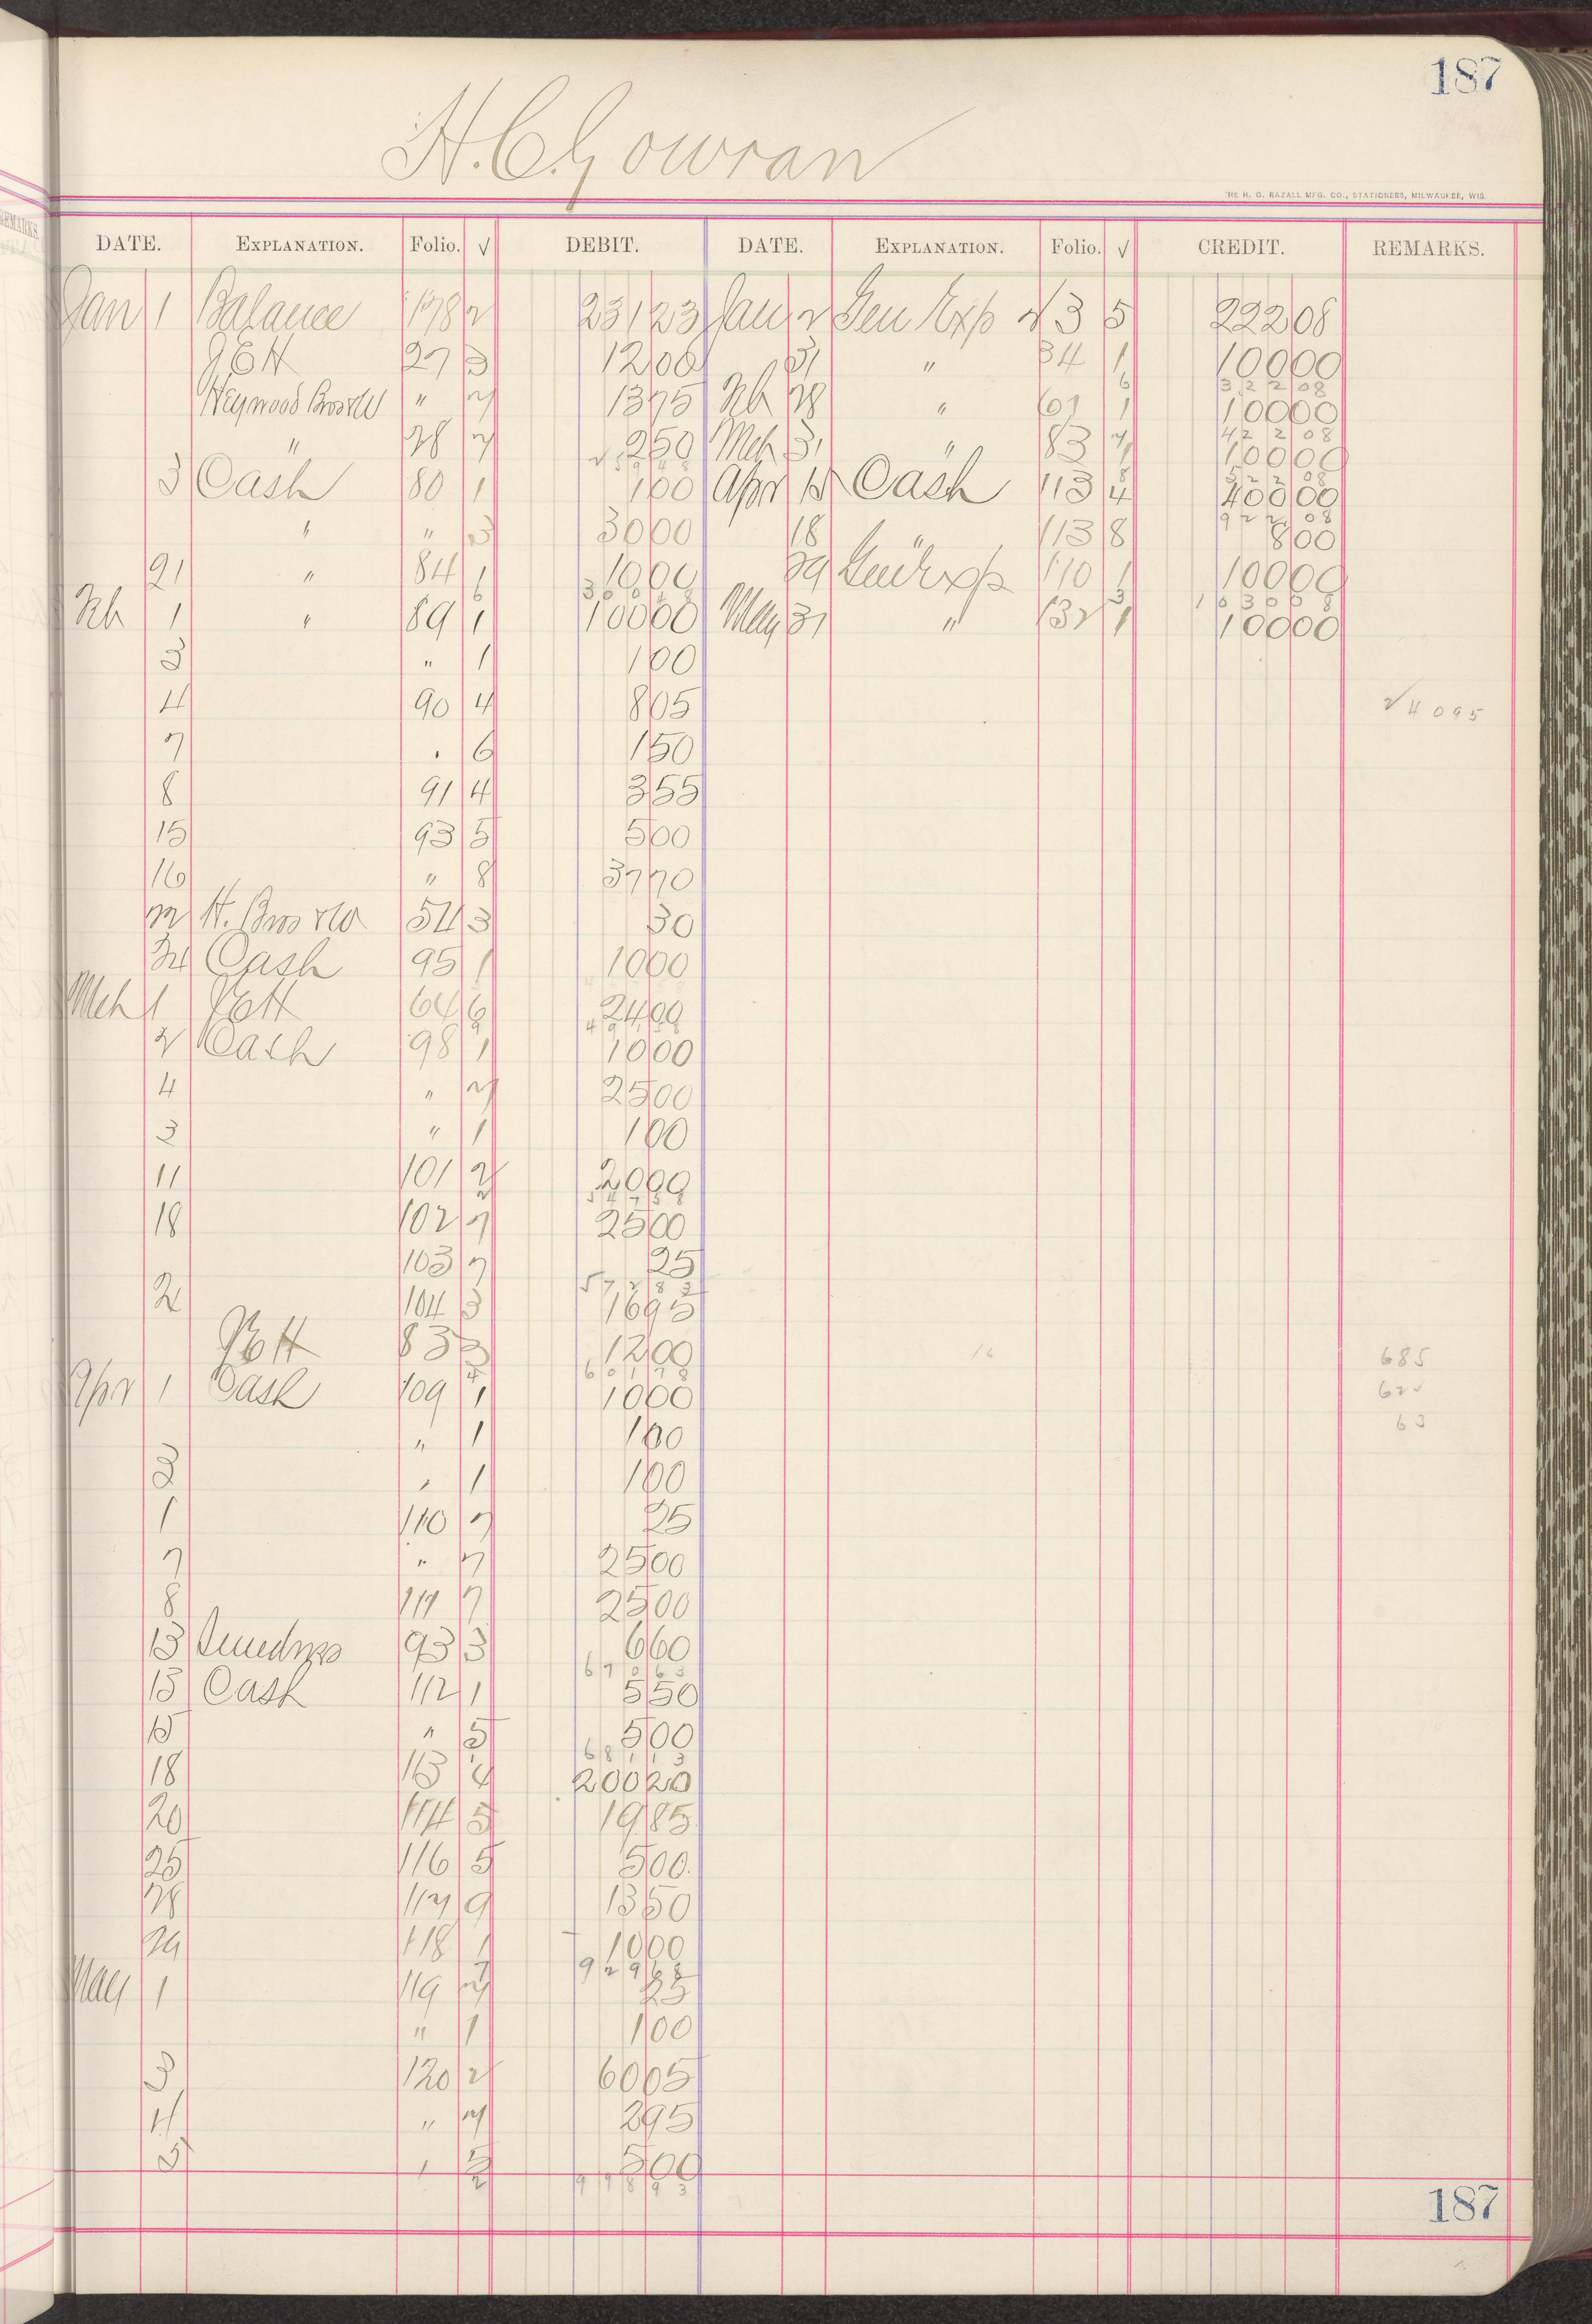 187
H. C. Gowran
THE H. G. RAZALL MFG. CO., STATIONERS, MILWAUKEE, WIS.
DATE. EXPLANATION. Folio. √ DEBIT. DATE. EXPLANATION. Folio. √ CREDIT. REMARKS.
Jan 1 Balance 178 2 231 23 Jan 2 Gen Exp 3 5 222 08
27 3 12 00 31 " 34 1 100 00
3 2 2 08
Heywood Bros & Co " 7 13 75 Feb 28 " 61 1 100 00
4 2 2 08
" 28 7 2 50 Mch 31 " 83 7 100 00
5 2 2 08
3 Cash 80 1 1 00 Apr 15 Cash 113 4 400 00
9 2 2 08
" " 3 30 00 18 " 113 8 8 00
21 " 84 1 10 00 29 Gen Exp 110 1 100 00
1 0 3 0 0 8
Feb 1 " 89 1 100 00 May 31 " 132 1 100 00
3 " 1 1 00
4 90 4 8 05 √ 4 0 9 5
7 " 6 1 50
8 91 4 3 55
15 93 5 5 00
16 " 8 37 70
22 H. Bros & Co 54 3 30
24 Cash 95 1 10 00
Mch 1 64 6 24 00
2 Cash 98 1 10 00
4 " 7 25 00
3 " 1 1 00
11 101 2 20 00
18 102 7 25 00
103 7 25
5 7 2 8 3
2 104 3 16 95
83 3 12 00 685
6 0 1 7 8
Apr 1 Cash 109 1 10 00 62
" 1 1 00 63
3 " 1 1 00
1 110 7 25
7 " 7 25 00
8 111 7 25 00
13 93 3 6 60
6 7 0 6 3
13 Cash 112 1 5 50
15 " 5 5 00
6 8 1 1 3
18 113 4 200 20
20 114 5 19 85
25 116 5 5 00
28 117 9 13 50
29 118 1 10 00
9 2 9 6 8
May 1 119 7 25
" 1 1 00
3 120 2 60 05
4 " 7 2 95
5 " 5 5 00
9 9 8 9 3
187